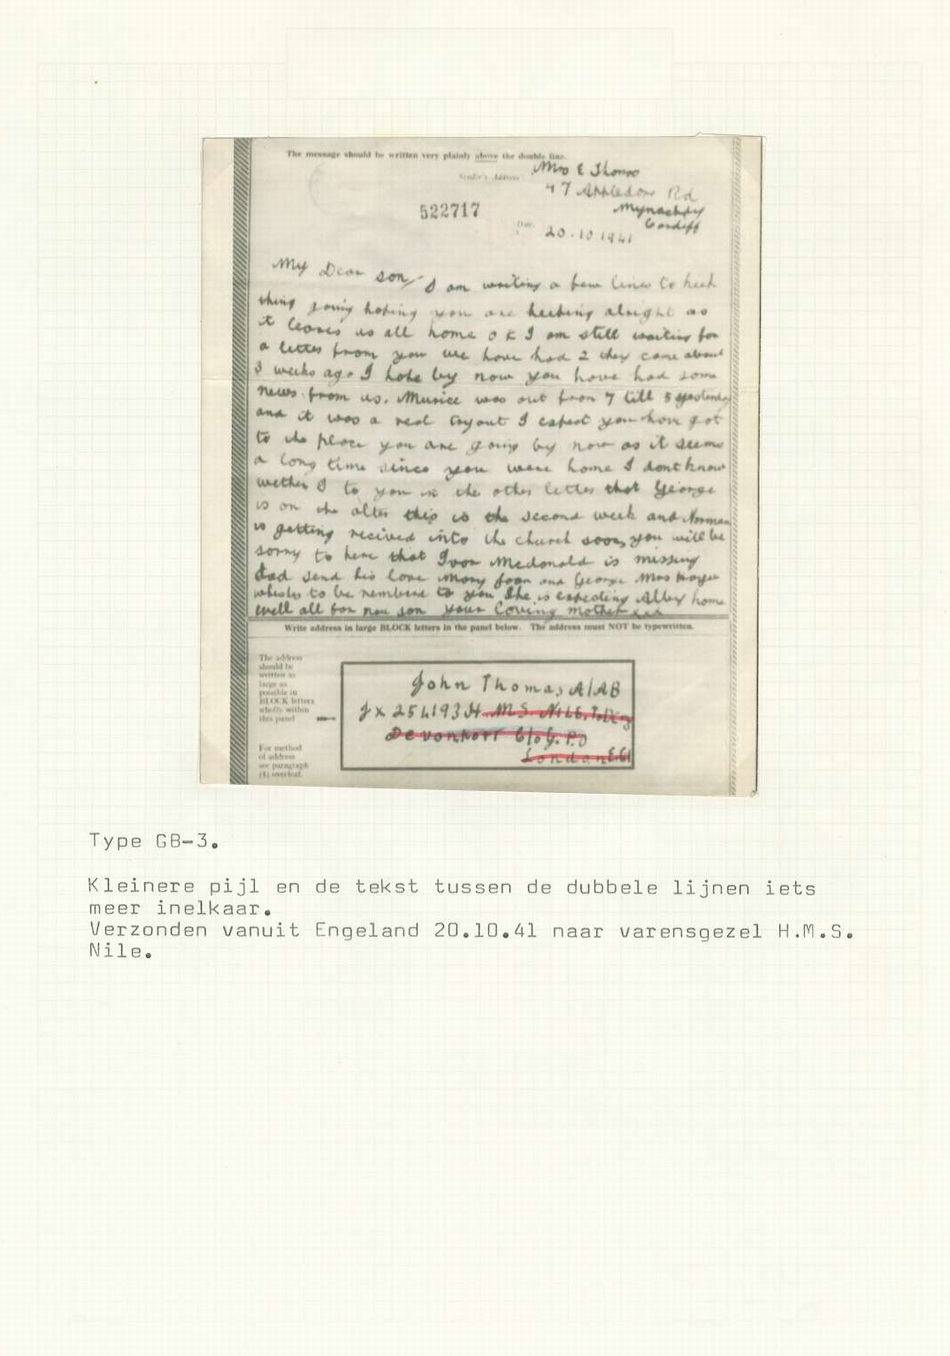 The message should be written very plainly above the double line.
Sender's Address
Mrs E Thomas
47 Appledore Rd
Mynachdy
Cardiff
522717
Date
20.10.1941
My Dear son, I am writing a few lines to keek
thing going hoping you are keeping alright as
it leaves us all home o k I am still waiting for
a letter from you we have had 2 they came about
3 weeks ago I hope by now you have had some
news from us. was out from 7 till 5 yesterday
and it was a real I expect you have got
to the place you are going by now as it seems
a long time since you were home I dont know
wether I to you in the other letter that George
is on the alter this is the second week and Norman
is getting recived into the church soon, you will be
sorry to here that Ivor Mcdonald is missing
dad send his love Joan and George Mrs
to be to you She is expecting home
well all for now son your loving mother xxx
Write address in large BLOCK letters in the panel below. The address must NOT be typewritten.
The address
should be
written in
large as
possible in
BLOCK letters
wholly within
this panel
For method
of address
see paragraph
(4) overleaf.
John Thomas A/AB
JX 254193 H.M.S. NILE.
Devonport C/o G.P.O
London E.C.1
Type GB-3.
Kleinere pijl en de tekst tussen de dubbele lijnen iets
meer inelkaar.
Verzonden vanuit Engeland 20.10.41 naar varensgezel H.M.S.
Nile.